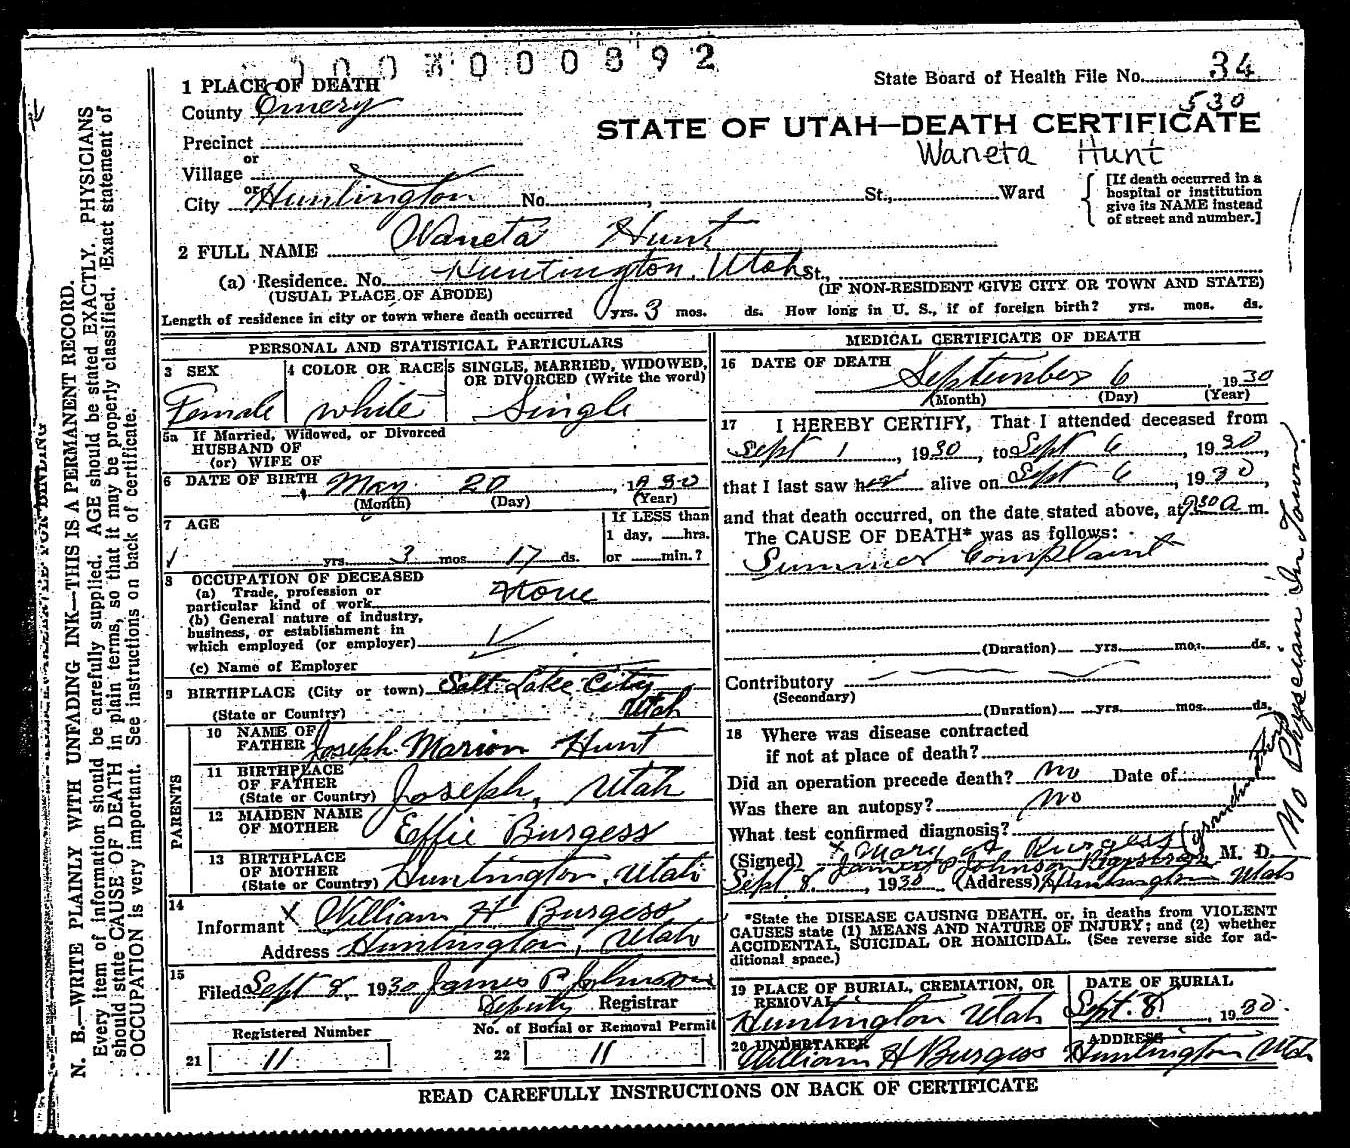 0 0 0 0 0 8 9 2
State Board of Health File No. 34
530
1 PLACE OF DEATH
County Emery
STATE OF UTAH—DEATH CERTIFICATE
Waneta Hunt
Precinct
or
Village
or
City Huntington No. , St., Ward
[If death occurred in a hospital or institution give its NAME instead of street and number.]
2 FULL NAME Waneta Hunt
(a) Residence. No. Huntington, Utah St.,
(USUAL PLACE OF ABODE) (IF NON-RESIDENT GIVE CITY OR TOWN AND STATE)
Length of residence in city or town where death occurred yrs. 3 mos. ds. How long in U. S., if of foreign birth? yrs. mos. ds.
PERSONAL AND STATISTICAL PARTICULARS
3 SEX
Female
4 COLOR OR RACE
White
5 SINGLE, MARRIED, WIDOWED, OR DIVORCED (Write the word)
Single
5a If Married, Widowed, or Divorced
HUSBAND OF
(or) WIFE OF
6 DATE OF BIRTH May 20, 1930
(Month) (Day) (Year)
7 AGE
yrs. 3 mos. 17 ds.
If LESS than
1 day, hrs.
or min.?
8 OCCUPATION OF DECEASED
(a) Trade, profession or
particular kind of work None
(b) General nature of industry,
business, or establishment in
which employed (or employer)
(c) Name of Employer
9 BIRTHPLACE (City or town) Salt Lake City
(State or Country) Utah
PARENTS
10 NAME OF FATHER Joseph Marion Hunt
11 BIRTHPLACE OF FATHER
(State or Country) Joseph, Utah
12 MAIDEN NAME OF MOTHER Effie Burgess
13 BIRTHPLACE OF MOTHER
(State or Country) Huntington, Utah
14
Informant X William H Burgess
Address Huntington, Utah
15
Filed Sept 8, 1930 James P Johnson
Deputy Registrar
Registered Number
21 11
No. of Burial or Removal Permit
22 11
MEDICAL CERTIFICATE OF DEATH
16 DATE OF DEATH September 6, 1930
(Month) (Day) (Year)
17 I HEREBY CERTIFY, That I attended deceased from
Sept 1, 1930, to Sept 6, 1930,
that I last saw her alive on Sept 6, 1930,
and that death occurred, on the date stated above, at 9:30 a m.
The CAUSE OF DEATH* was as follows:
Summer Complaint
(Duration) yrs. mos. ds.
Contributory
(Secondary)
(Duration) yrs. mos. ds.
18 Where was disease contracted
if not at place of death?
Did an operation precede death? no Date of
Was there an autopsy? no
What test confirmed diagnosis?
(Signed) x Mary Burgess M. D.
James P Johnson
Sept 8, 1930 (Address) Huntington Utah
No Physician In Town
*State the DISEASE CAUSING DEATH, or, in deaths from VIOLENT
CAUSES state (1) MEANS AND NATURE OF INJURY; and (2) whether
ACCIDENTAL, SUICIDAL OR HOMICIDAL. (See reverse side for ad-
ditional space.)
19 PLACE OF BURIAL, CREMATION, OR REMOVAL
Huntington Utah
DATE OF BURIAL
Sept. 8, 1930
20 UNDERTAKER
William H Burgess
ADDRESS
Huntington Utah
READ CAREFULLY INSTRUCTIONS ON BACK OF CERTIFICATE
N. B.—WRITE PLAINLY WITH UNFADING INK—THIS IS A PERMANENT RECORD.
Every item of information should be carefully supplied. AGE should be stated EXACTLY. PHYSICIANS
should state CAUSE OF DEATH in plain terms, so that it may be properly classified. Exact statement of
OCCUPATION is very important. See instructions on back of certificate.